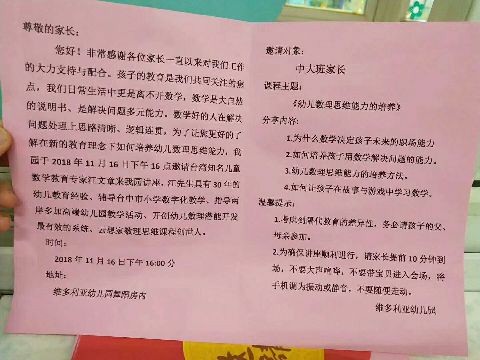 尊敬的家长：
您好！非常感谢各位家长一直以来对我们工作
的大力支持与配合。孩子的教育是我们共同关注的焦
点，我们日常生活中更是离不开数学，数学是大自然
的说明书、是解决问题多元能力。数学好的人在解决
问题处理上思路清晰、逻辑连贯，为了让您更好的了
解在新的教育理念下如何培养幼儿数理思维能力，我
园于2018年11月16日下午16点邀请台湾知名儿童
数学教育专家江文章来我园讲座，江先生具有30年的
幼儿教育经验、辅导台中市小学数字化教学、指导两
岸多加高端幼儿园教学活动、开创幼儿数理潜能开发
最有效的系统、云想家数理思维课程创始人。
时间：
2018年11月16日下午16:00分
地址：
维多利亚幼儿园舞蹈房内
邀请对象：
中大班家长
课程主题：
《幼儿数理思维能力的培养》
分享内容：
1.为什么数学决定孩子未来的职场能力
2.如何培养孩子用数学解决问题的能力。
3.幼儿数理思维能力的培养方法。
4.如何让孩子在故事与游戏中学习数学。
温馨提示：
1.考虑到隔代教育的差异性，务必请孩子的父、
母亲参加。
2.为确保讲座顺利进行，请家长提前10分钟到
场，不要大声喧哗，不要带宝贝进入会场，将
手机调为振动或静音，不要随便走动。
维多利亚幼儿园